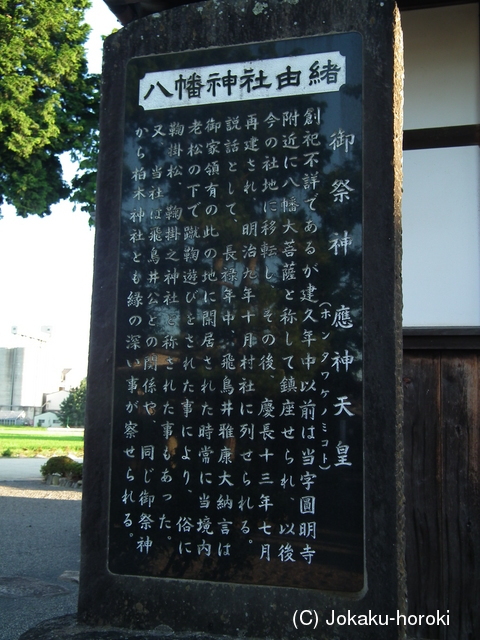 八幡神社由緒
御祭神 應神天皇
(ホンタワケノミコト)
創祀不詳であるが建久年中以前は当字圓明寺
附近に八幡大菩薩と称して鎮座せられ、以後
今の社地に移転し、その後、慶長十三年七月
再建され、明治九年十月村社に列せられる。
説話として、長禄年中、飛鳥井雅康大納言は
御家領有の此の地に閑居された時常に当境内
老松の下で蹴鞠遊びをされた事により、俗に
鞠掛松、鞠掛之神社と称された事もあった。
又、当社は飛鳥井公との関係や、同じ御祭神
から柏木神社とも縁の深い事が察せられる。
(C) Jokaku-horoki